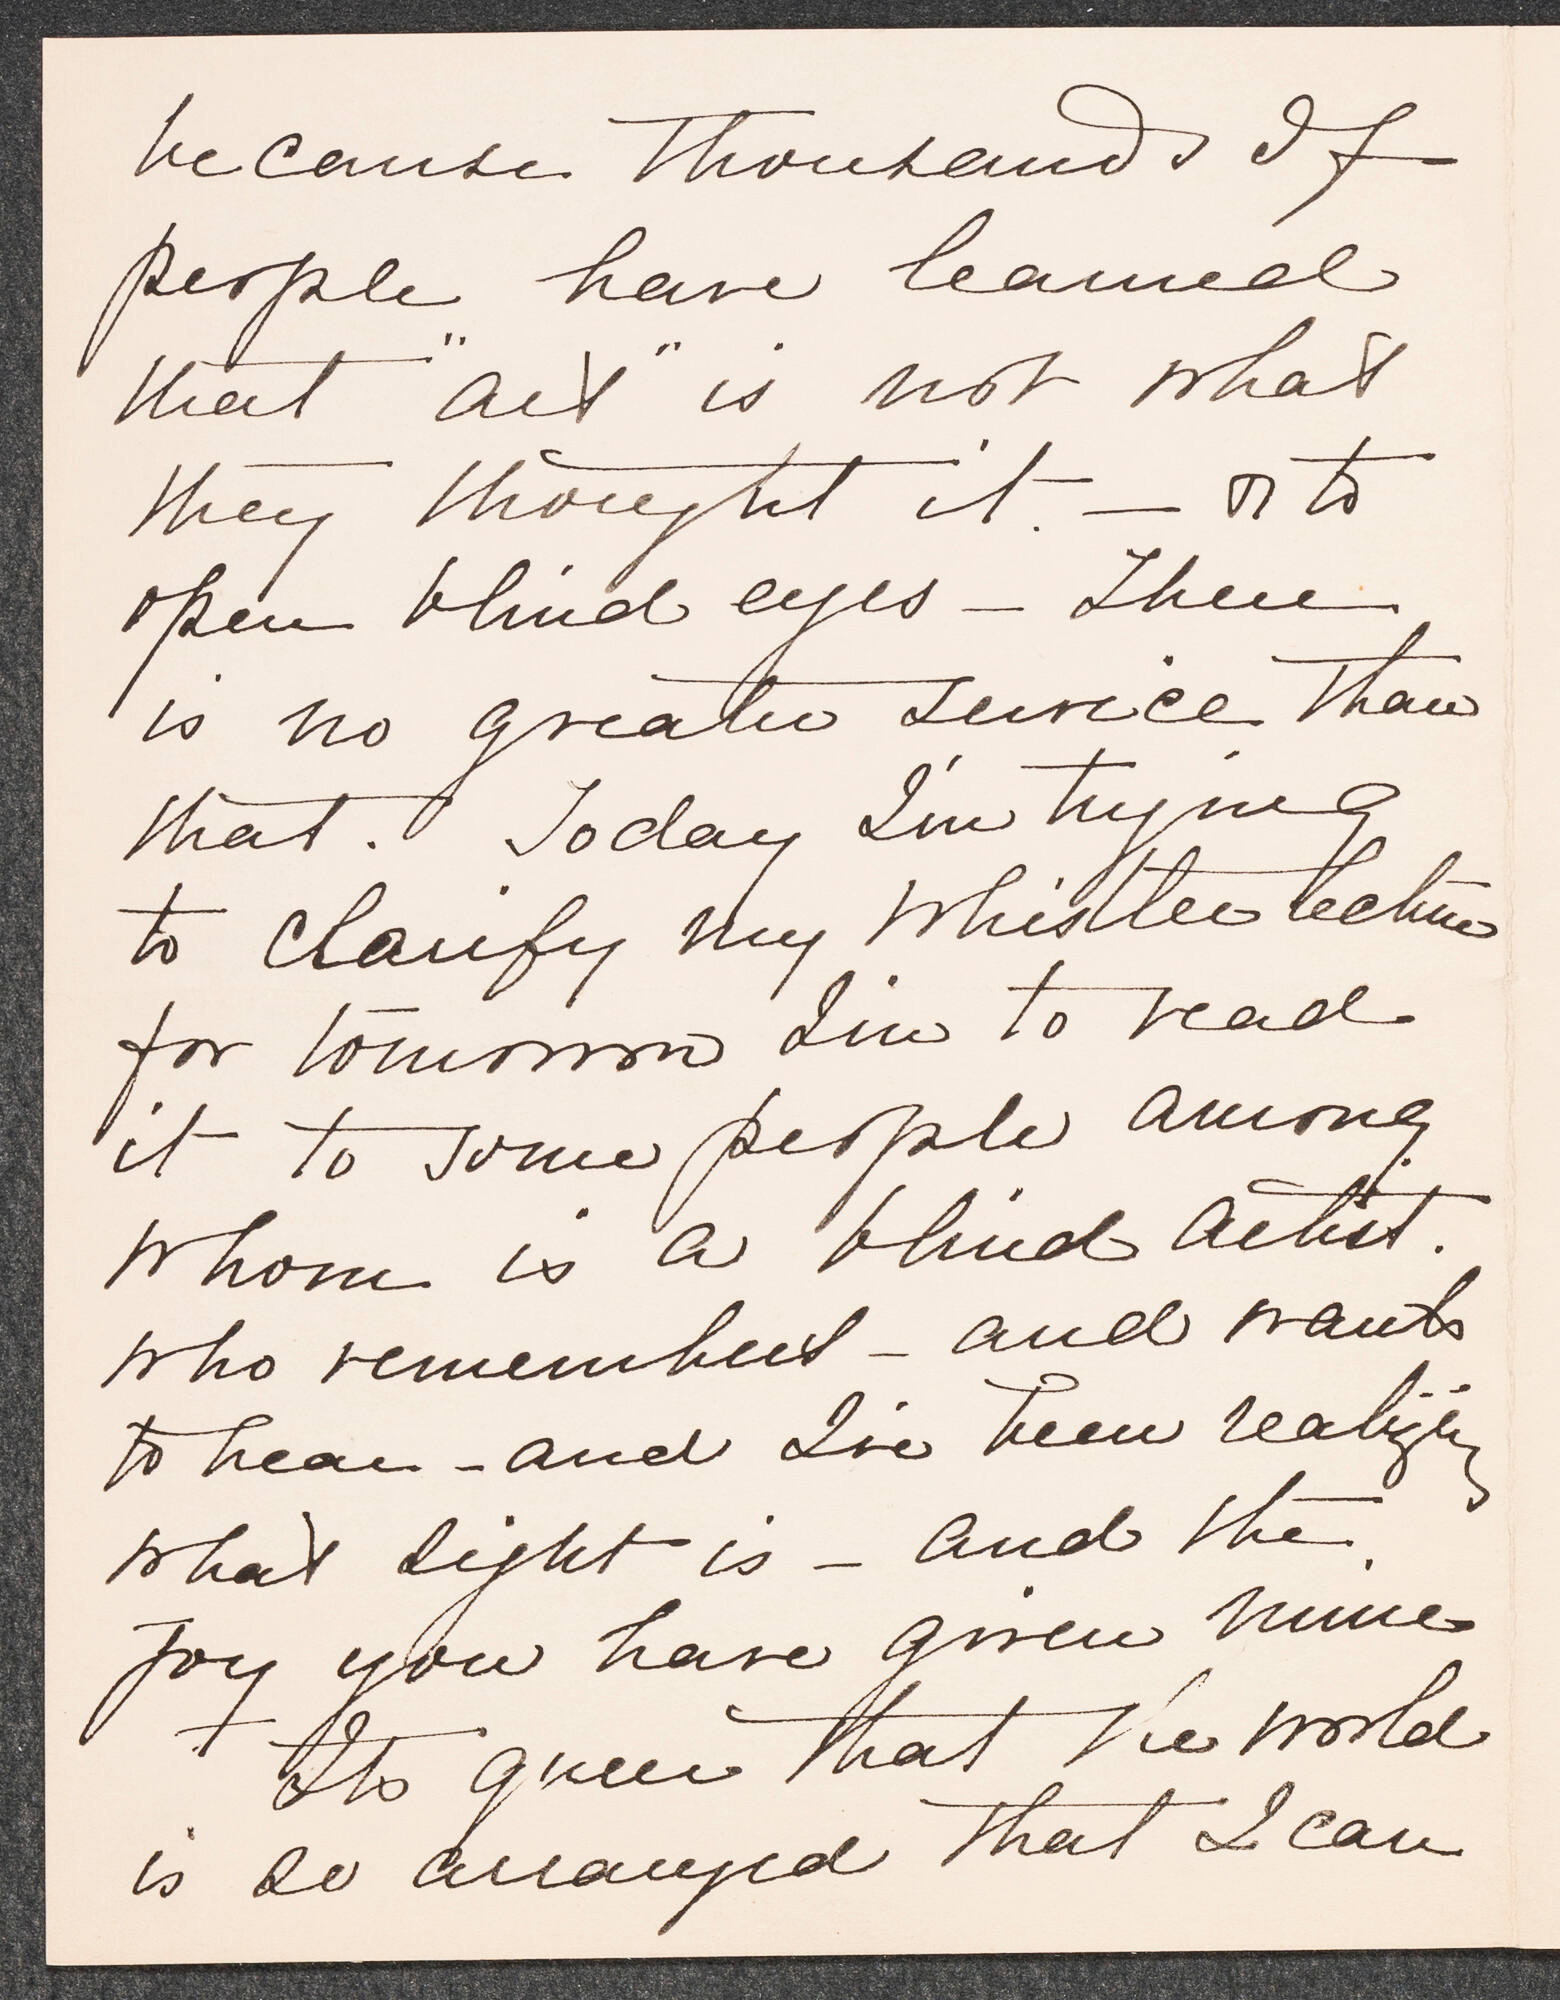 because thousands of
people have learned
that "art" is not what
they thought it. — or to
open blind eyes — There
is no greater service than
that. Today I'm trying
to clarify my Whistler lecture
for tomorrow I'm to read
it to some people among
whom is a blind artist.
who remembers — and wants
to hear — and I've been realizing
what sight is — and the
joy you have given mine.
It's queer that the world
is so arranged that I can